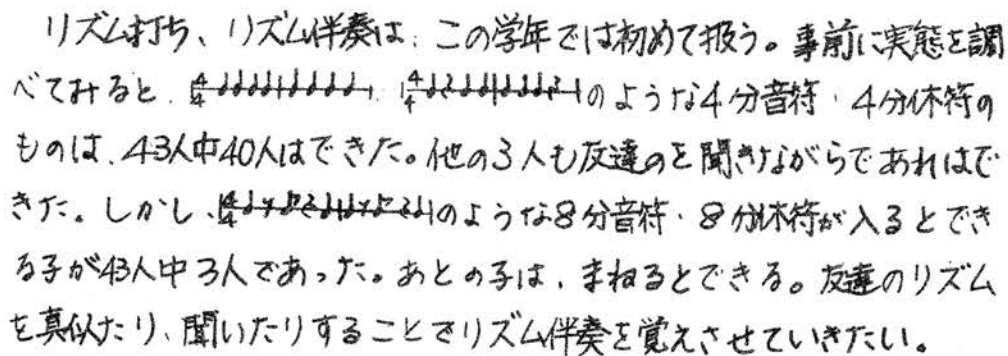 リズム打ち、リズム伴奏は、この学年では初めて扱う。事前に実態を調
べてみると、のような4分音符、4分休符の
ものは、43人中40人はできた。他の3人も友達のを聞きながらであればで
きた。しかし、のような8分音符、8分休符が入るとでき
る子が43人中3人であった。あとの子は、まねるとできる。友達のリズム
を真似たり、聞いたりすることでリズム伴奏を覚えさせていきたい。